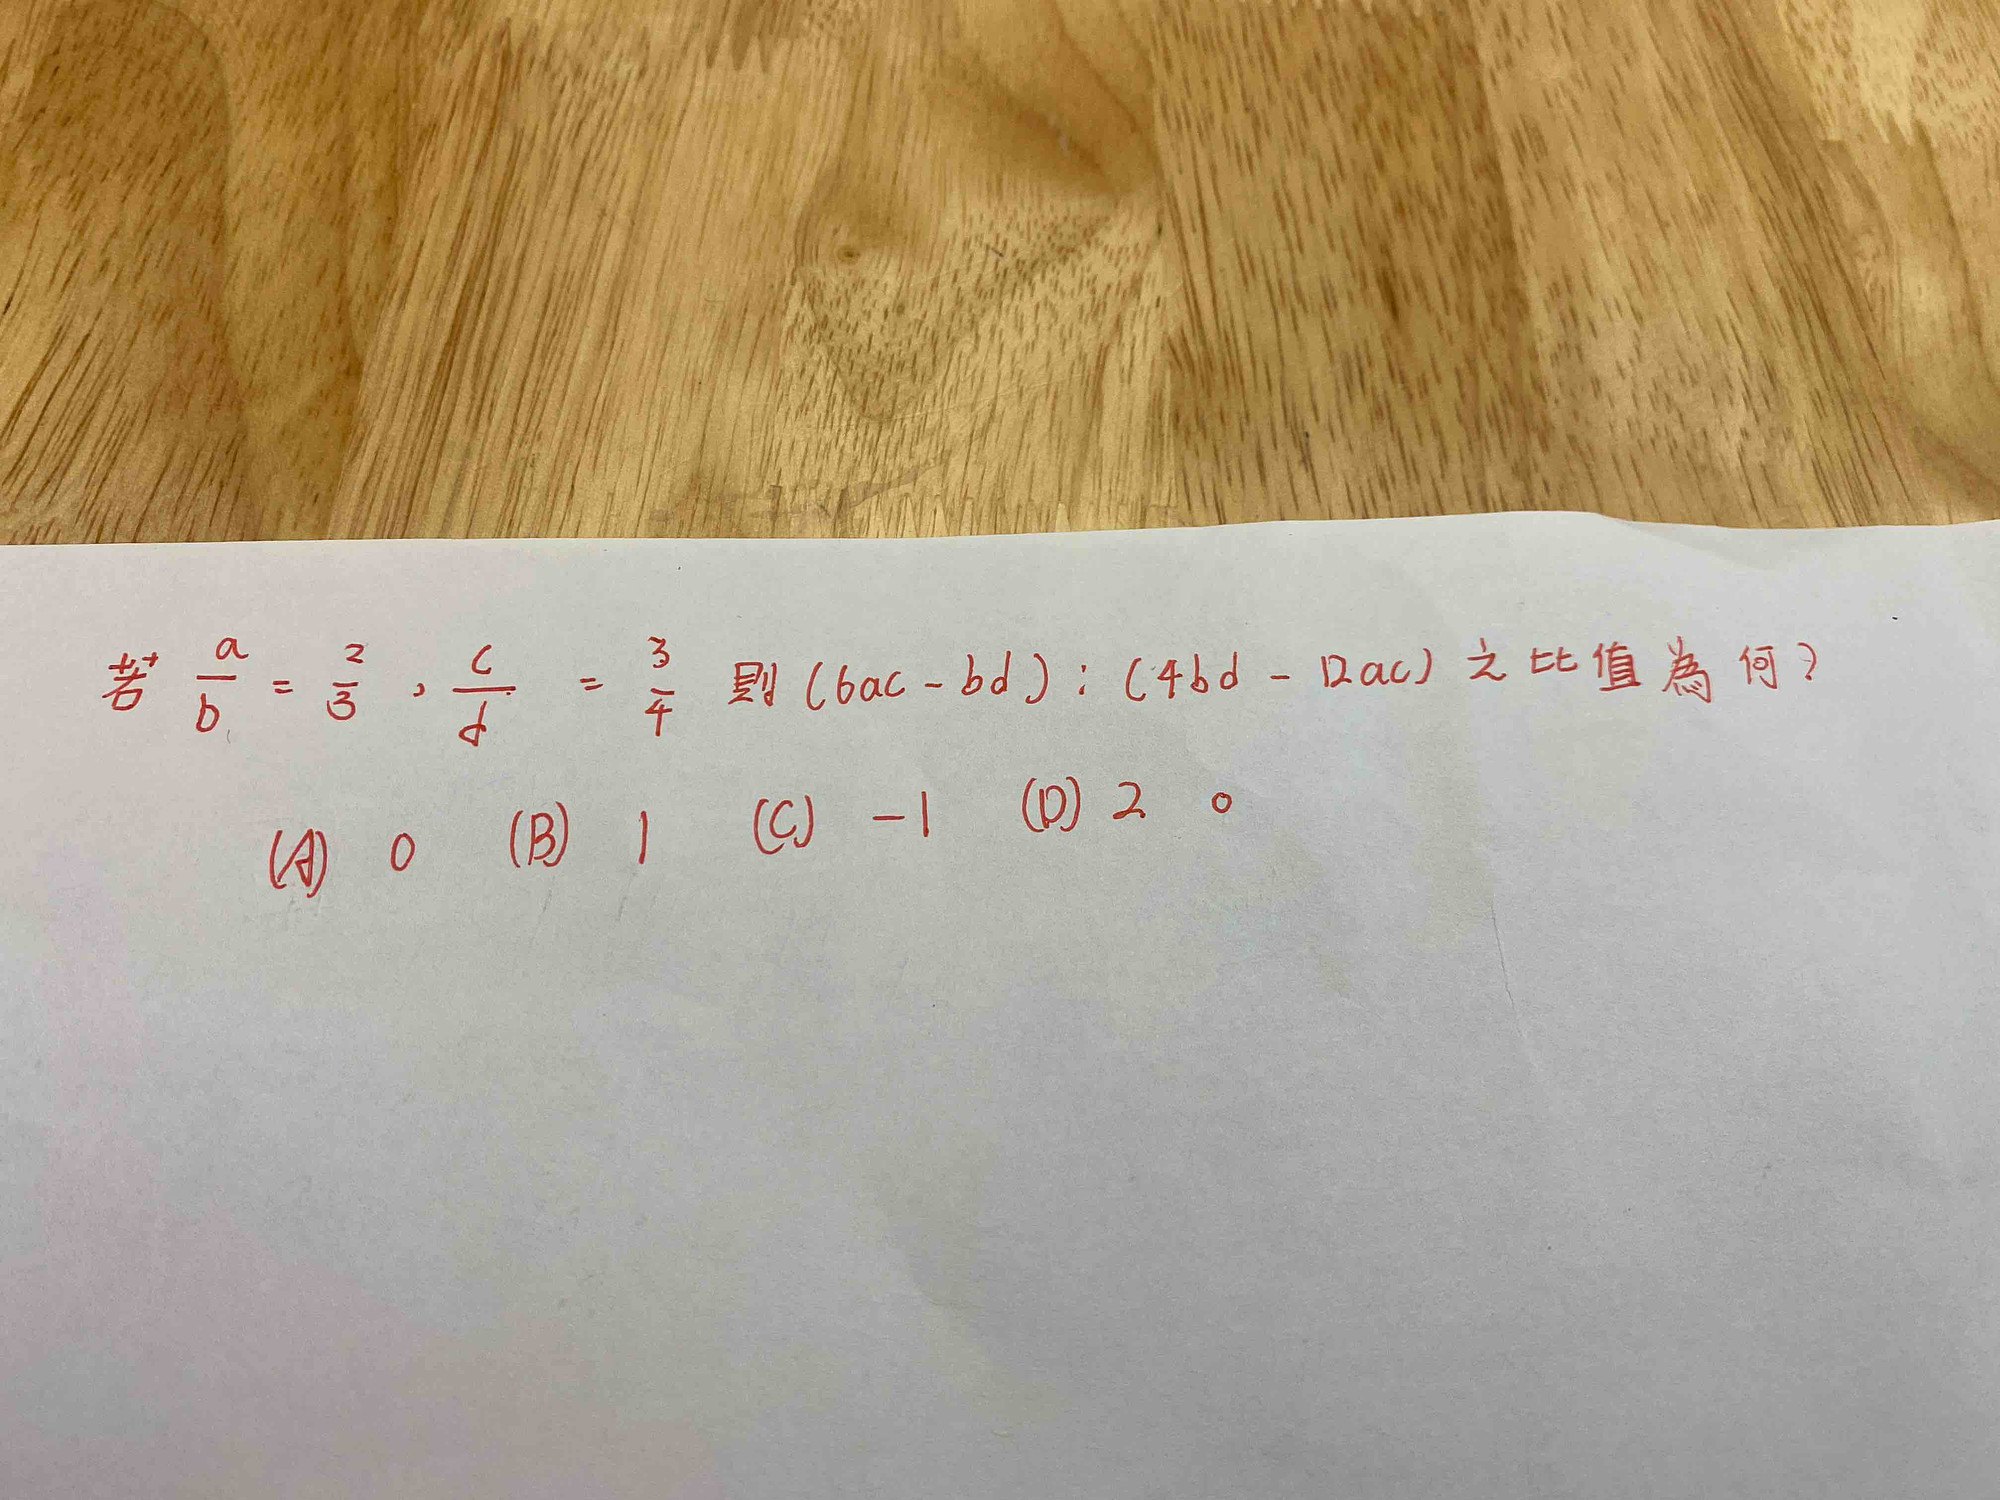 若 a/b = 2/3 , c/d = 3/4 則 (6ac - bd) : (4bd - 12ac) 之比值為何?
(A) 0 (B) 1 (C) -1 (D) 2 。